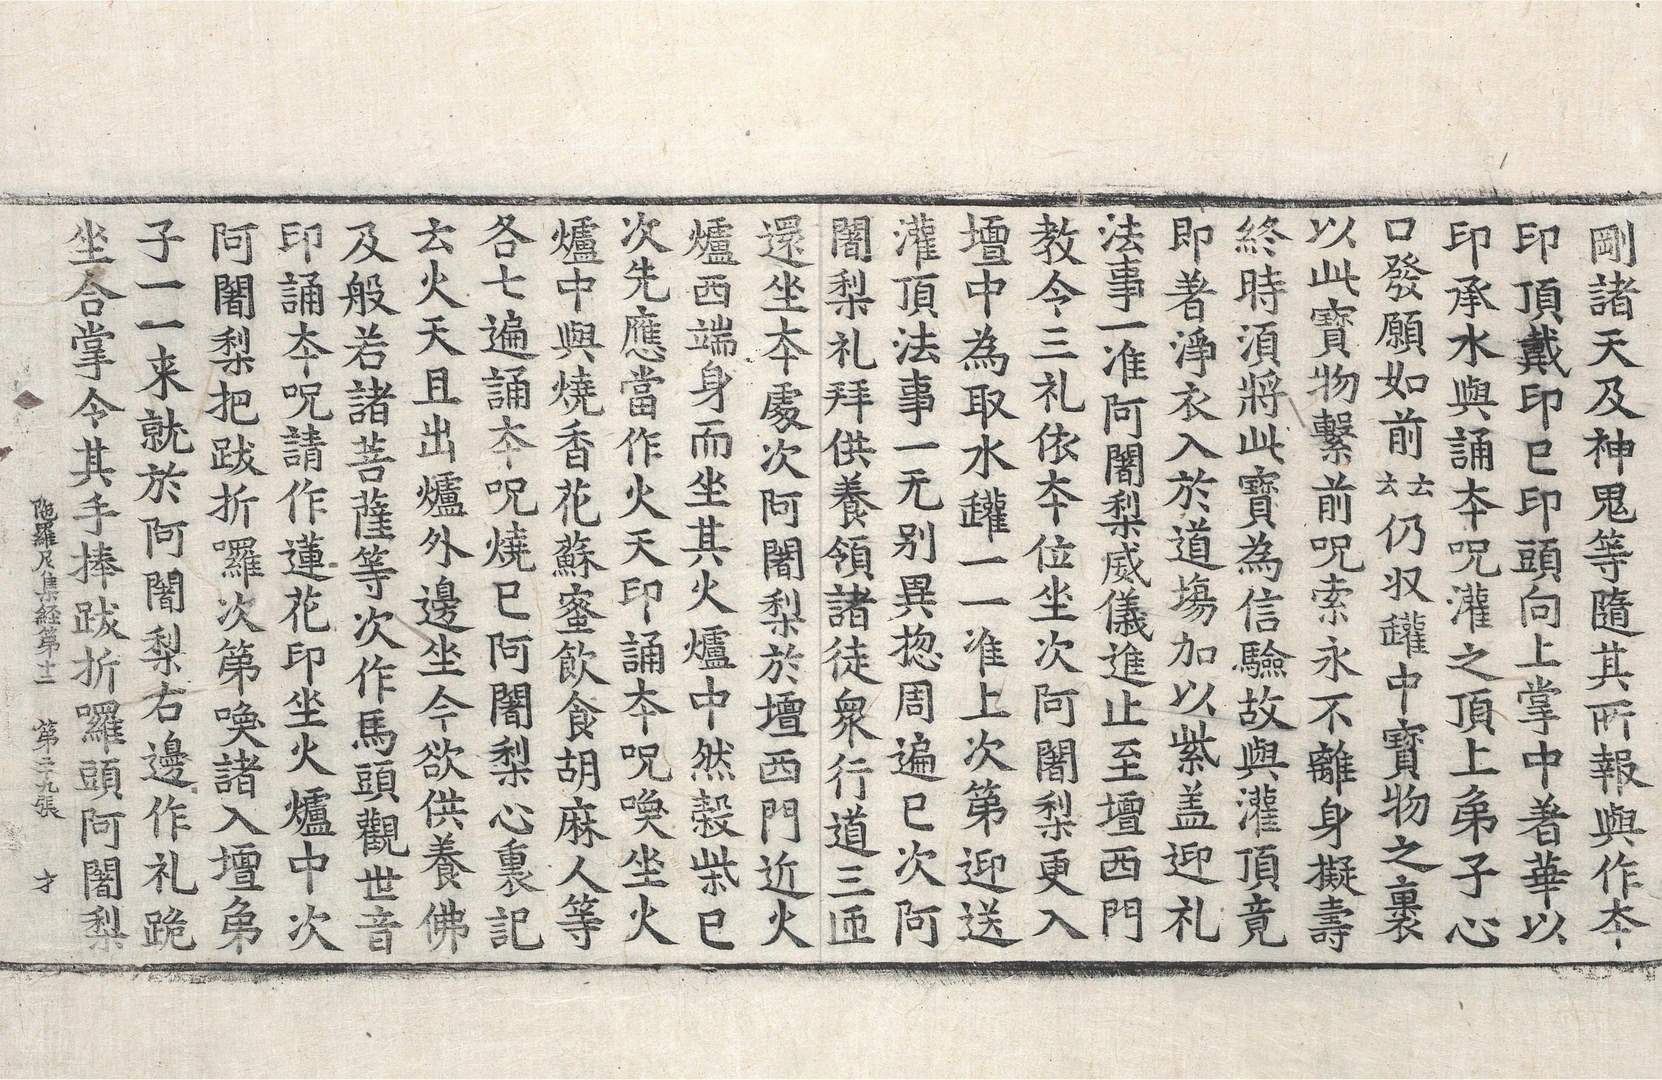 剛諸天及神鬼等隨其所報與作夲
印頂戴印巳印頭向上掌中著華以
印承水與誦夲呪灌之頂上弟子心
口發願如前云云仍収罐中寳物之裹
以此寳物繫前前呪索永不離身擬壽
終時湏將此寳為信驗故與灌頂竟
即著淨衣入於道塲加以紫盖迎礼
法事一准阿闍梨威儀進止至壇西門
教令三礼依夲位坐次阿闍梨更入
壇中為取水罐一一准上次第迎送
灌頂法事一无别異捴周遍巳次阿
闍梨礼拜供養領諸徒衆行道三匝
還坐夲處次阿闍梨於壇西門近火
爐西端身而坐其火爐中然榖柴巳
次先應當作火天印誦夲呪喚坐火
爐中與燒香花蘇蜜飲食胡麻人等
各七遍誦夲呪燒巳阿闍梨心裏記
云火天且出爐外邊坐今欲供養佛
及般若諸菩薩等次作馬頭觀世音
印誦夲呪請作蓮花印坐火爐中次
阿闍梨把跋折囉次第喚諸入壇弟
子一一来就於阿闍梨右邊作礼跪
坐合掌令其手捧跋折囉頭阿闍梨
陁羅尼集経第十二 第二十九張 才